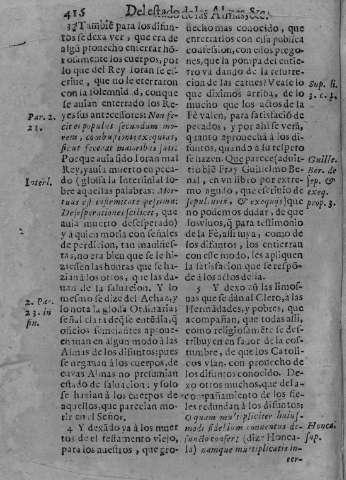 415 Del estado de las Almas, &c.
3 Tambiẽ para los difun-
tos se dexa ver, que era de
algũ prouecho enterrar hõ-
rosamente los cuerpos, por
lo que del Rey Ioran se es-
criue, que no le enterraron
con la solemnidad, conque
se auian enterrado los Re-
yes sus antecessores: Non fe-
cit ei populus secundum mo-
rem, combustionis exequias,
sicut fecerat maioribus suis:
Porque auia sido Ioran mal
Rey, y auia muerto en peca-
do (glossa la Interlinial so-
bre aquellas palabras: Mor-
tuus est infirmitate pessima:
Desesperationis scilicet, que
auia muerto desesperado)
y a quien moria con señales
de perdicion, tan manifies-
tas, no era bien que se le hi-
ziessen las honras que se ha-
zian a los otros, que las da-
uan de la saluacion. Y lo
mesmo se dize del Achaz, y
lo nota la glosa Ordinaria;
señal clara de que entẽdia, q̃
oficios semejantes aproue-
chan en algun modo a las
Almas de los difuntos; pues
se negauan a los cuerpos, de
cuyas Almas no presumian
estado de saluacion; y solo
se hazian a los cuerpos de
aquellos, que parecian mo-
rir en el Señor.
4 Y dexãdo ya a los muer-
tos de el testamento viejo,
para los nuestros, que gro-
Par. 2.
21.
Interl.
2. Par.
23. in
fin.
uecho mas conocido, que
enterrarlos con essa publica
confession, con essos prego-
nes, que la pompa del entie-
rro va dando de la resurre-
cion de las carnes? Vease lo
que diximos arriba, de lo
mucho que los actos de la
Fè valen, para satisfacciõ de
pecados, y por ahi se verà,
quanto aprouecha à los di-
funtos, quando a su respeto
se hazen. Que parece (aduir-
tiò biẽ Fray Guillelmo Be-
rnal, en vn libro por extre-
mo agudo, que escriuiò de
sepulturis, & exequijs) que
no podemos dudar, de que
los viuos, q̃ para testimonio
de la Fè, assi suya, como de
los difuntos, los entierran
con esse modo, les apliquen
la satisfacion que se respõ-
de à los actos della.
5 Y dexo aqui las limos-
nas que se dàn al Clero, a las
Hermãdades, y pobres, que
acompañan, que todas assi,
como religiosamẽte se des-
tribuyen en fauor de la cos-
tumbre, de que los Catoli-
cos vsan, con prouecho de
los difuntos conocido. De-
xo otros muchos, que del a-
compañamiento de los fie-
les redundan à los difuntos:
O quam multipliciter huius-
modi fidelium conuentus de-
functo confert; (dize Honca-
la) namque multiplicatis in-
ter-
Sup. li.
3. c. 4.
Guille.
Ber. de
sep. &
exeq.
prop. 3.
Honca.
sup.